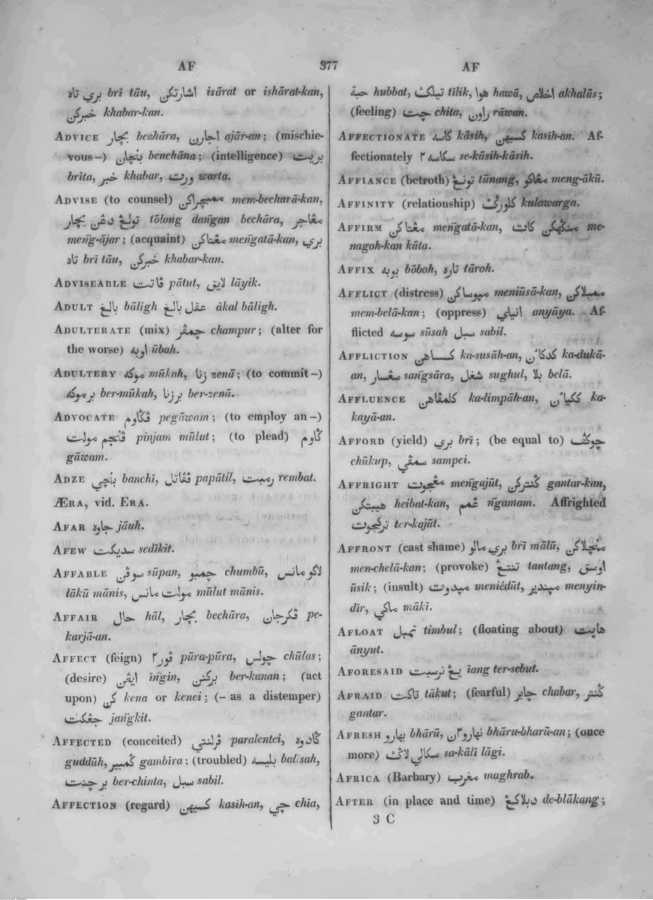 AF 377 AF
بري تاد brī tāu, اشارتكن isārat or ishārat-kan,
خبركن khabar-kan.
ADVICE بچار bechāra, اجارن ajār-an; (mischie-
vous–) بنچان benchāna; (intelligence) بريت
brīta, خبر khabar, ورت warta.
ADVISE (to counsel) ممبچراكن mem-bechará-kan,
تولڠ دڠن بچار tōlong dañgan bechāra, مڠاجر
meñg-ājar; (acquaint) مڠتاكن meñgatā-kan, بري
تاد brī tāu, خبركن khabar-kan.
ADVISEABLE ڤاتت pātut, لايق lāyik.
ADULT بالغ bāligh عقل بالغ ākal bāligh.
ADULTERATE (mix) چمڤر champur; (alter for
the worse) اوبه ūbah.
ADULTERY موكه mūkah, زنا zenā; (to commit–)
برموكه ber-mūkah, برزنا ber-zenā.
ADVOCATE ڤڬاوم pegāwam; (to employ an–)
ڤنجم مولت pinjam mūlut; (to plead) ڬاوم
gāwam.
ADZE بنچي banchi, ڤڤاتل papātil, رمبت rembat.
ÆRA, vid. ERA.
AFAR جاوه jāuh.
AFEW سديكت sedīkit.
AFFABLE سوڤن sūpan, چمبو chumbū, لاكو مانس
lākū mānis, مولت مانس mūlut mānis.
AFFAIR حال hāl, بچار bechāra, ڤكرجان pe-
karjā-an.
AFFECT (feign) ڤور٢ pūra-pūra, چولس chūlas;
(desire) ايڠن iñgin, بركنن ber-kanan; (act
upon) كن kena or kenei; (– as a distemper)
جڠكت jañgkit.
AFFECTED (conceited) ڤرلنتي paralentei, ڬادوه
guddūh, ڬمبير gambīra; (troubled) بليسه balisah,
برچنت ber-chinta, سبل sabil.
AFFECTION (regard) كسيهن kasih-an, چي chia,
حبة hubbat, تيلك tilik, هوا hawā, اخلاص akhalās;
(feeling) چت chita, راون rāwan.
AFFECTIONATE كاسه kāsih, كسيهن kasih-an. Af-
fectionately سكاسه ٢ se-kāsih-kāsih.
AFFIANCE (betroth) تونڠ tūnang, مڠاكو meng-ākū.
AFFINITY (relationship) كلورڬ kulawarga.
AFFIRM مڠتاكن meñgatā-kan, منڬهكن كات me-
nagoh-kan kāta.
AFFIX بوبه bōboh, تاره tāroh.
AFFLICT (distress) منيوساكن meniūsā-kan, ممبلاكن
mem-belā-kan; (oppress) انياي anyāya. Af-
flicted سوسه sūsah سبل sabil.
AFFLICTION كسساهن ka-susāh-an, كدكان ka-dukā-
an, سڠسار sañgsāra, شغل sughul, بلا belā.
AFFLUENCE كلمڤاهن ka-limpāh-an, ككيان ka-
kayā-an.
AFFORD (yield) بري brī; (be equal to) چوكڤ
chūkup, سمڤي sampei.
AFFRIGHT مڠجوت meñgajūt, ڬنتركن gantar-kan,
هيبتكن heibat-kan, ڠمم ñgamam. Affrighted
تركجوت ter-kajūt.
AFFRONT (cast shame) بري مالو brī mālū, منچلاكن
men-chelā-kan; (provoke) تنتڠ tantang, اوسق
ūsik; (insult) ميدوت meniēdūt, ميندير menyin-
dir, ماكي mākī.
AFLOAT تمبل timbul; (floating about) هاپت
ānyut.
AFORESAID يڠ ترسبت īang ter-sebut.
AFRAID تاكت tākut; (fearful) چابر chabar, ڬنتر
gantar.
AFRESH بهارو bhārū, بهارو٢ن bhāru-bharū-an; (once
more) سكالي لاڬ sa-kāli lāgi.
AFRICA (Barbary) مغرب maghrab.
AFTER (in place and time) دبلاكڠ de-blākang;
3 C